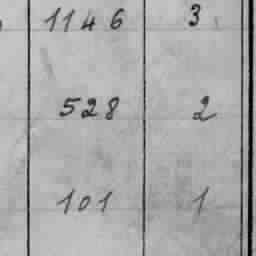 1146 3
528 2
101 1